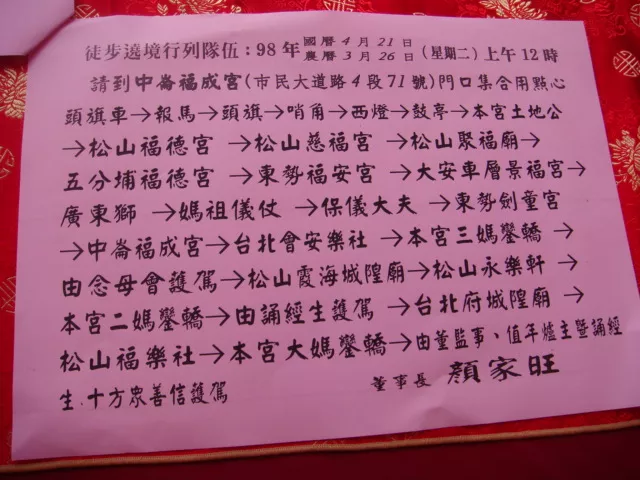 徒步遶境行列隊伍:98年 國曆4月21日 農曆3月26日 (星期二)上午12時
請到中崙福成宮(市民大道路4段71號)門口集合用點心
頭旗車→報馬→頭旗→哨角→西燈→鼓亭→本宮土地公
→松山福德宮 →松山慈福宮 →松山聚福廟→
五分埔福德宮 →東勢福安宮 →大安車層景福宮→
廣東獅 →媽祖儀仗 →保儀大夫→東勢劍童宮
→中崙福成宮→台北會安樂社 →本宮三媽鑾轎→
由念母會護駕→松山霞海城隍廟→松山永樂軒 →
本宮二媽鑾轎→由誦經生護駕 →台北府城隍廟 →
松山福樂社→本宮大媽鑾轎→由董監事、值年爐主暨誦經
生.十方眾善信護駕 董事長 顏家旺